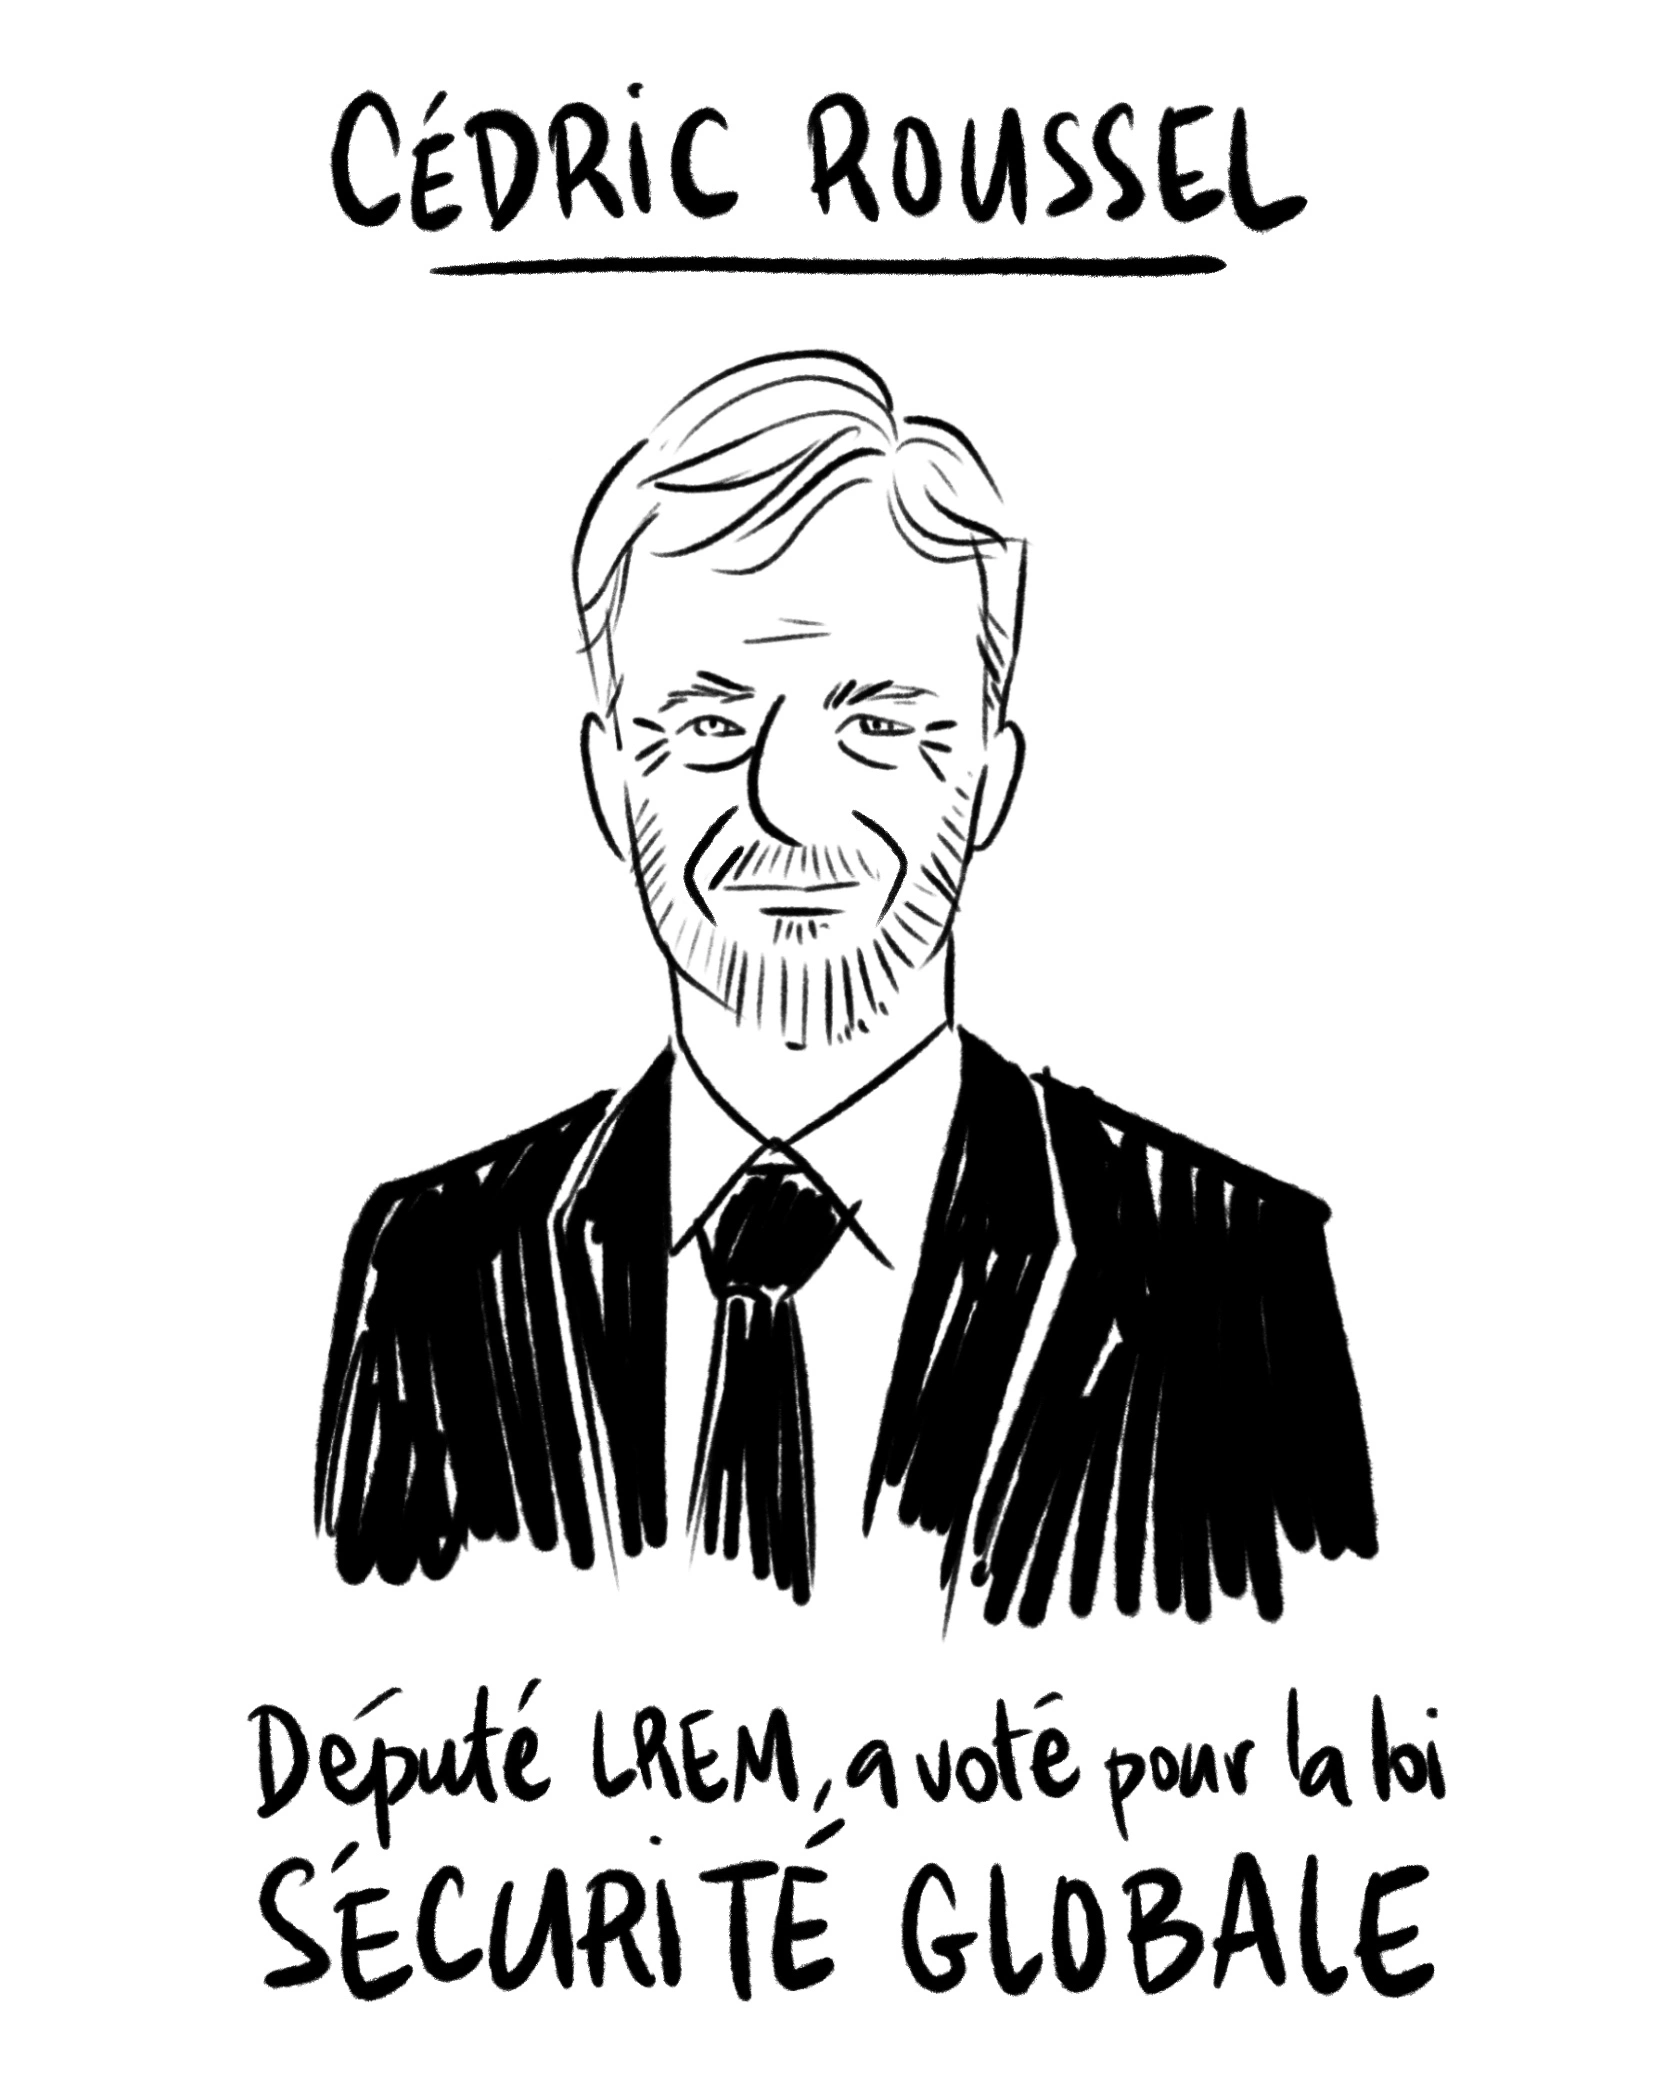 CÉDRiC ROUSSEL
Député LREM, a voté pour la loi
SÉCURiTÉ GLOBALE